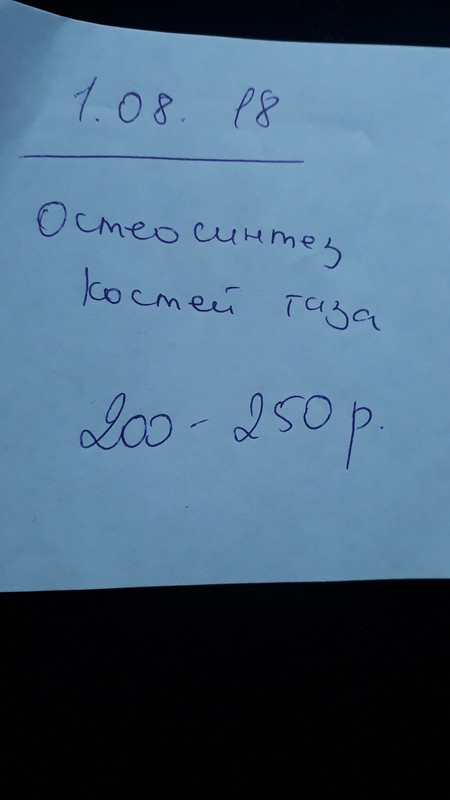 1.08. 18
Остеосинтез
костей таза
200 - 250 р.